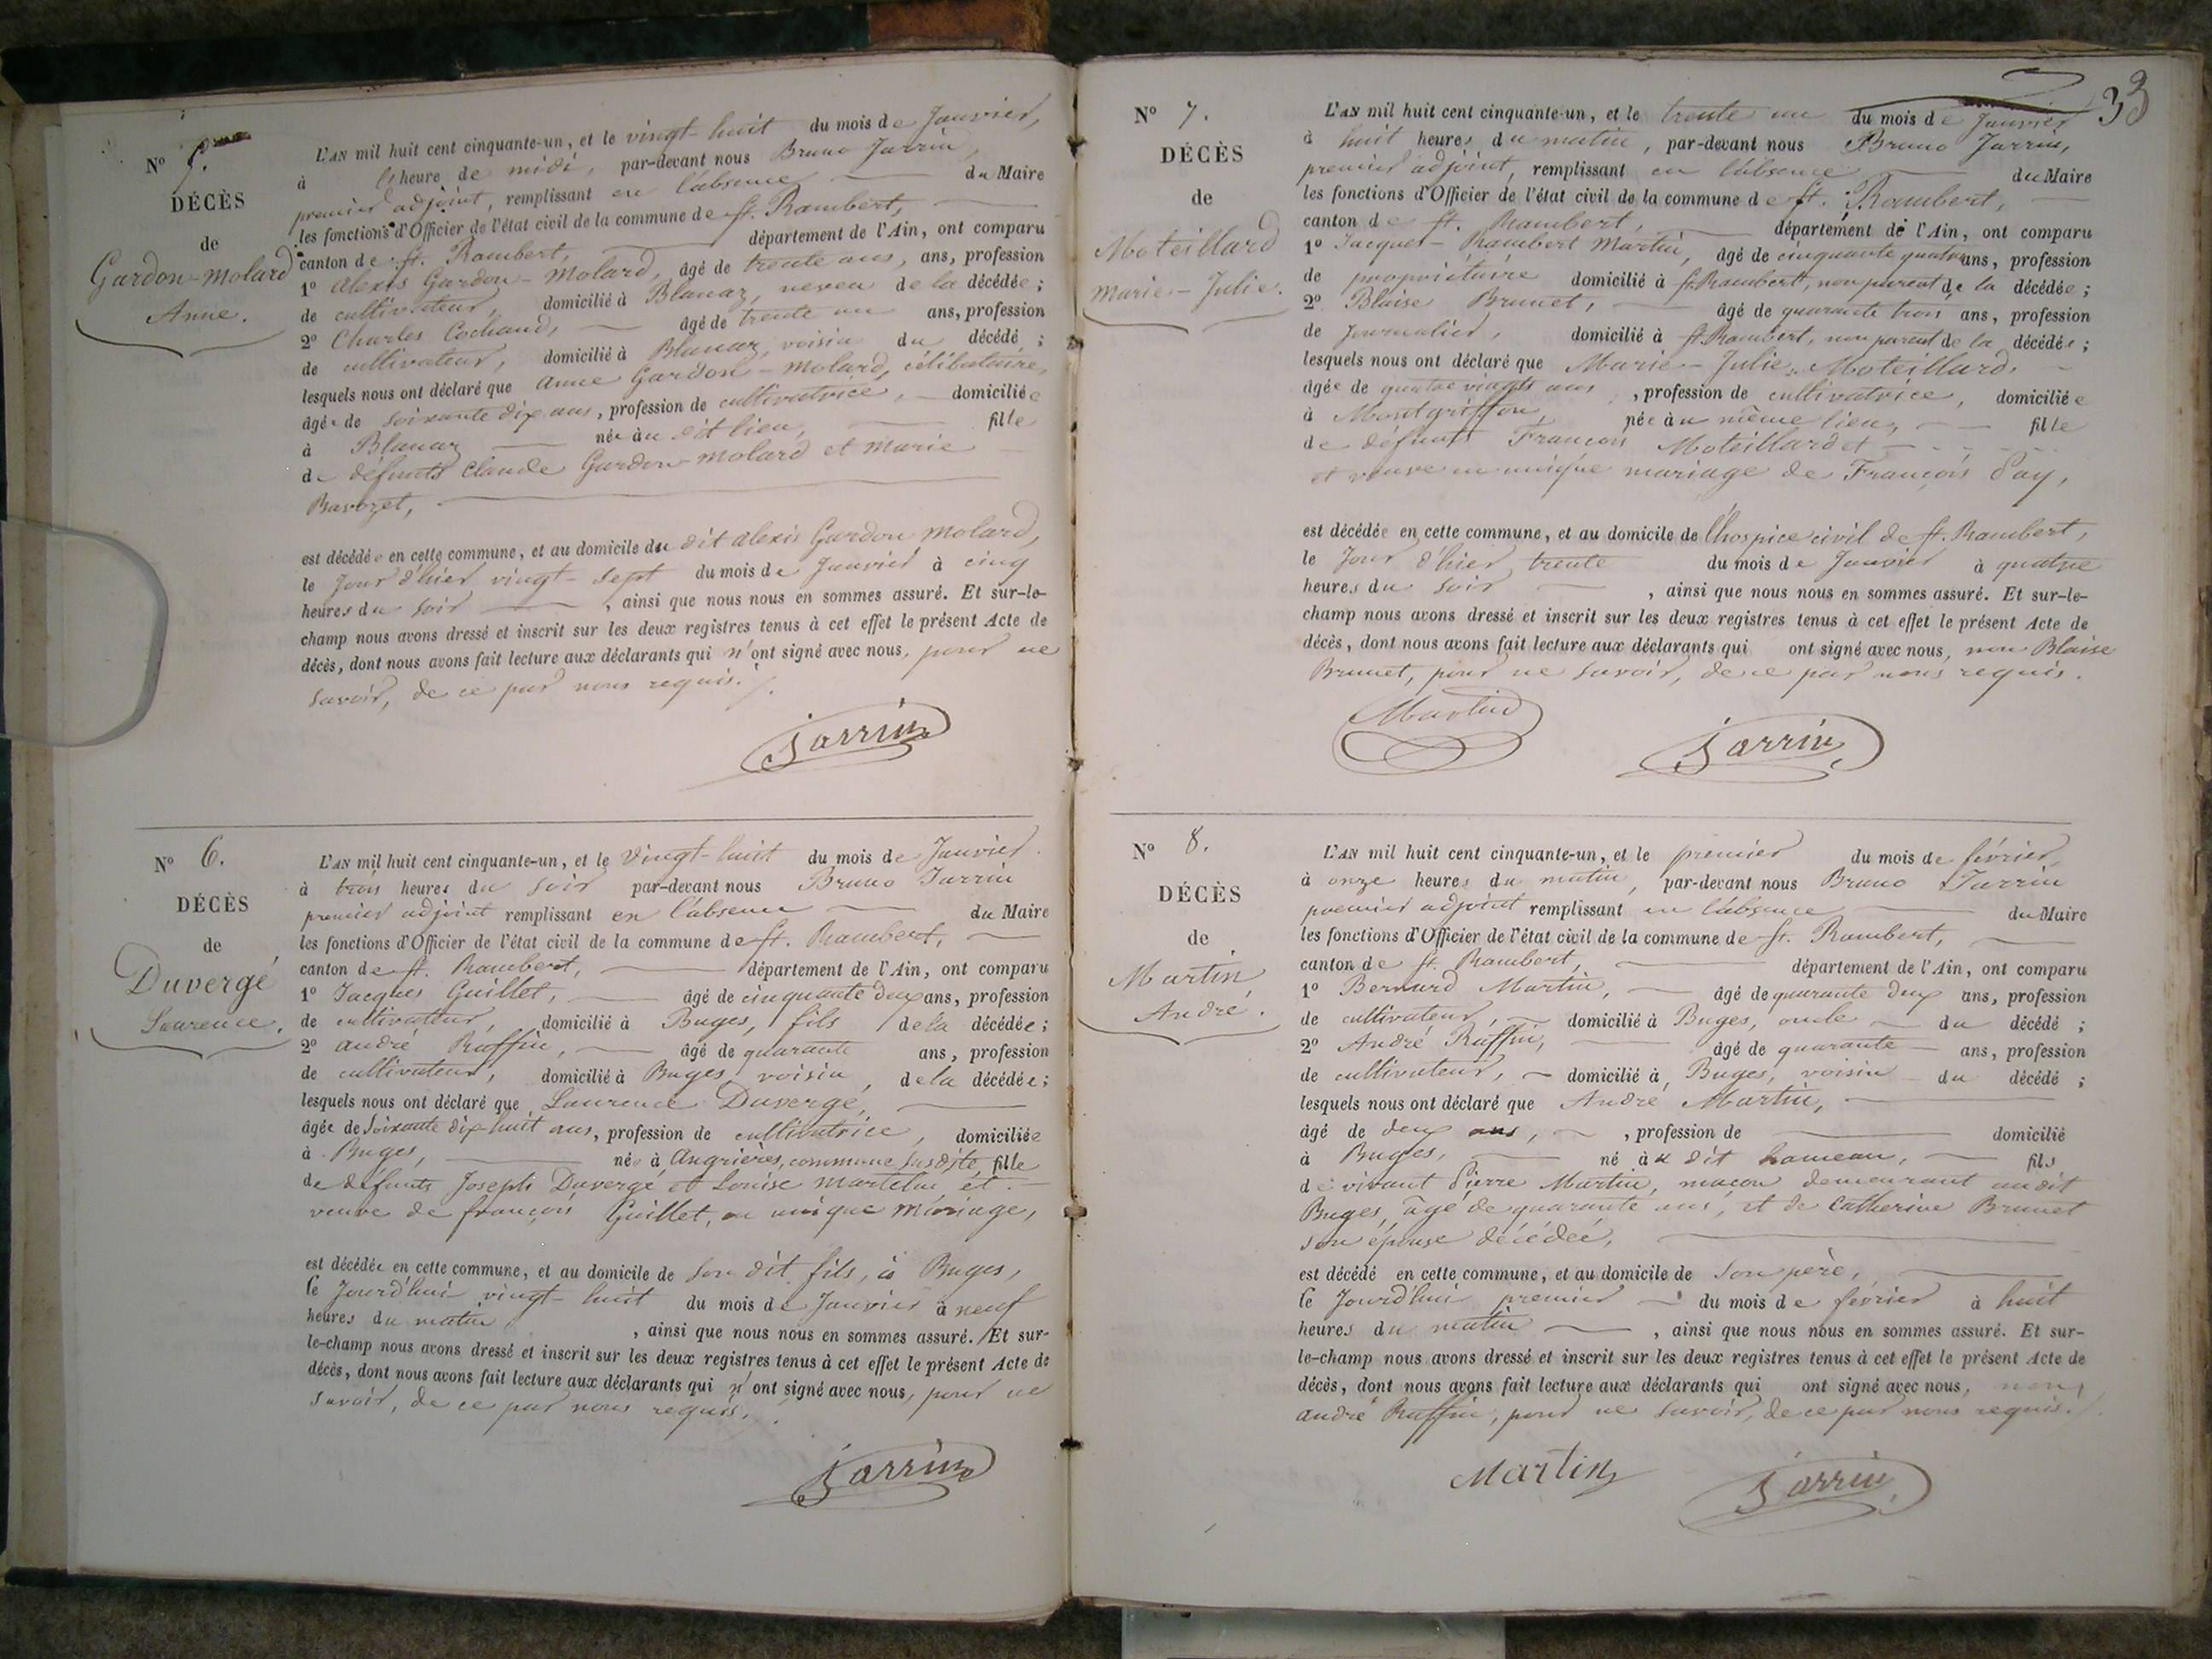 N° 5.
DÉCÈS
de
Gardon-Molard
Anne.
L'AN mil huit cent cinquante-un, et le vingt-huit du mois de Janvier,
à l'heure de midi, par-devant nous Bruno Jarrin,
premier adjoint, remplissant en l'absence du Maire
les fonctions d'Officier de l'état civil de la commune de St. Rambert,
canton de St. Rambert, département de l'Ain, ont comparu
1° Alexis Gardon-Molard, âgé de trente ans, ans, profession
de cultivateur, domicilié à Blanaz, neveu de la décédée;
2° Charles Cochand, âgé de trente un ans, profession
de cultivateur, domicilié à Blanaz, voisin du décédé;
lesquels nous ont déclaré que Anne Gardon-Molard, célibataire,
âgée de soixante dix ans, profession de cultivatrice, domiciliée
à Blanaz née au dit lieu, fille
de défunts Claude Gardon-Molard et Marie
Bavozet,
est décédée en cette commune, et au domicile du dit Alexis Gardon Molard,
le Jour d'hier vingt-sept du mois de Janvier à cinq
heures du soir, ainsi que nous nous en sommes assuré. Et sur-le-
champ nous avons dressé et inscrit sur les deux registres tenus à cet effet le présent Acte de
décès, dont nous avons fait lecture aux déclarants qui n'ont signé avec nous, pour ne
savoir, de ce par nous requis.
Jarrin
N° 6.
DÉCÈS
de
Duvergé
Laurence.
L'AN mil huit cent cinquante-un, et le Vingt-huit du mois de Janvier.
à trois heures du soir par-devant nous Bruno Jarrin
premier adjoint remplissant en l'absence du Maire
les fonctions d'Officier de l'état civil de la commune de St. Rambert,
canton de St. Rambert, département de l'Ain, ont comparu
1° Jacques Guillet, âgé de cinquante deux ans, profession
de cultivateur, domicilié à Buges, fils de la décédée;
2° André Ruffin, âgé de quarante ans, profession
de cultivateur, domicilié à Buges, voisin, de la décédée;
lesquels nous ont déclaré que Laurence Duvergé,
âgée de soixante dix-huit ans, profession de cultivatrice, domiciliée
à Buges, née à Angrières, commune susdite, fille
de défunts Joseph Duvergé et Louise Martelin, et
veuve de françois Guillet, en unique mariage,
est décédée en cette commune, et au domicile de son dit fils, à Buges,
le Jourd'hui vingt-huit du mois de Janvier à neuf
heures du matin, ainsi que nous nous en sommes assuré. Et sur-
le-champ nous avons dressé et inscrit sur les deux registres tenus à cet effet le présent Acte de
décès, dont nous avons fait lecture aux déclarants qui n'ont signé avec nous, pour ne
savoir, de ce par nous requis.
Jarrin
33
N° 7.
DÉCÈS
de
Moteillard
Marie-Julie.
L'AN mil huit cent cinquante-un, et le trente un du mois de Janvier
à huit heures du matin, par-devant nous Bruno Jarrin,
premier adjoint, remplissant en l'absence du Maire
les fonctions d'Officier de l'état civil de la commune de St. Rambert,
canton de St. Rambert, département de l'Ain, ont comparu
1° Jacques-Rambert Martin, âgé de cinquante quatre ans, profession
de propriétaire domicilié à St. Rambert, non parent de la décédée;
2° Blaise Brunet, âgé de quarante trois ans, profession
de Journalier, domicilié à St. Rambert, non parent de la décédée;
lesquels nous ont déclaré que Marie-Julie Moteillard,
âgée de quatre vingts ans, profession de cultivatrice, domiciliée
à Montgriffon, née au même lieu, fille
de défunts François Moteillard et
et veuve en unique mariage de François Pay,
est décédée en cette commune, et au domicile de l'hospice civil de St. Rambert,
le Jour d'hier trente du mois de Janvier à quatre
heures du soir, ainsi que nous nous en sommes assuré. Et sur-le-
champ nous avons dressé et inscrit sur les deux registres tenus à cet effet le présent Acte de
décès, dont nous avons fait lecture aux déclarants qui ont signé avec nous, non Blaise
Brunet, pour ne savoir, de ce par nous requis.
Martin Jarrin
N° 8.
DÉCÈS
de
Martin
André.
L'AN mil huit cent cinquante-un, et le premier du mois de février,
à onze heures du matin, par-devant nous Bruno Jarrin
premier adjoint remplissant en l'absence du Maire
les fonctions d'Officier de l'état civil de la commune de St. Rambert,
canton de St. Rambert, département de l'Ain, ont comparu
1° Bernard Martin, âgé de quarante deux ans, profession
de cultivateur, domicilié à Buges, oncle du décédé;
2° André Ruffin, âgé de quarante ans, profession
de cultivateur, domicilié à Buges, voisin du décédé;
lesquels nous ont déclaré que André Martin,
âgé de deux ans, profession de domicilié
à Buges, né au dit hameau, fils
de vivant Pierre Martin, maçon demeurant au dit
Buges, âgé de quarante ans, et de Catherine Brunet
son épouse décédée,
est décédé en cette commune, et au domicile de son père,
le Jourd'hui premier du mois de février à huit
heures du matin, ainsi que nous nous en sommes assuré. Et sur-
le-champ nous avons dressé et inscrit sur les deux registres tenus à cet effet le présent Acte de
décès, dont nous avons fait lecture aux déclarants qui ont signé avec nous, non
André Ruffin, pour ne savoir, de ce par nous requis.
Martin Jarrin